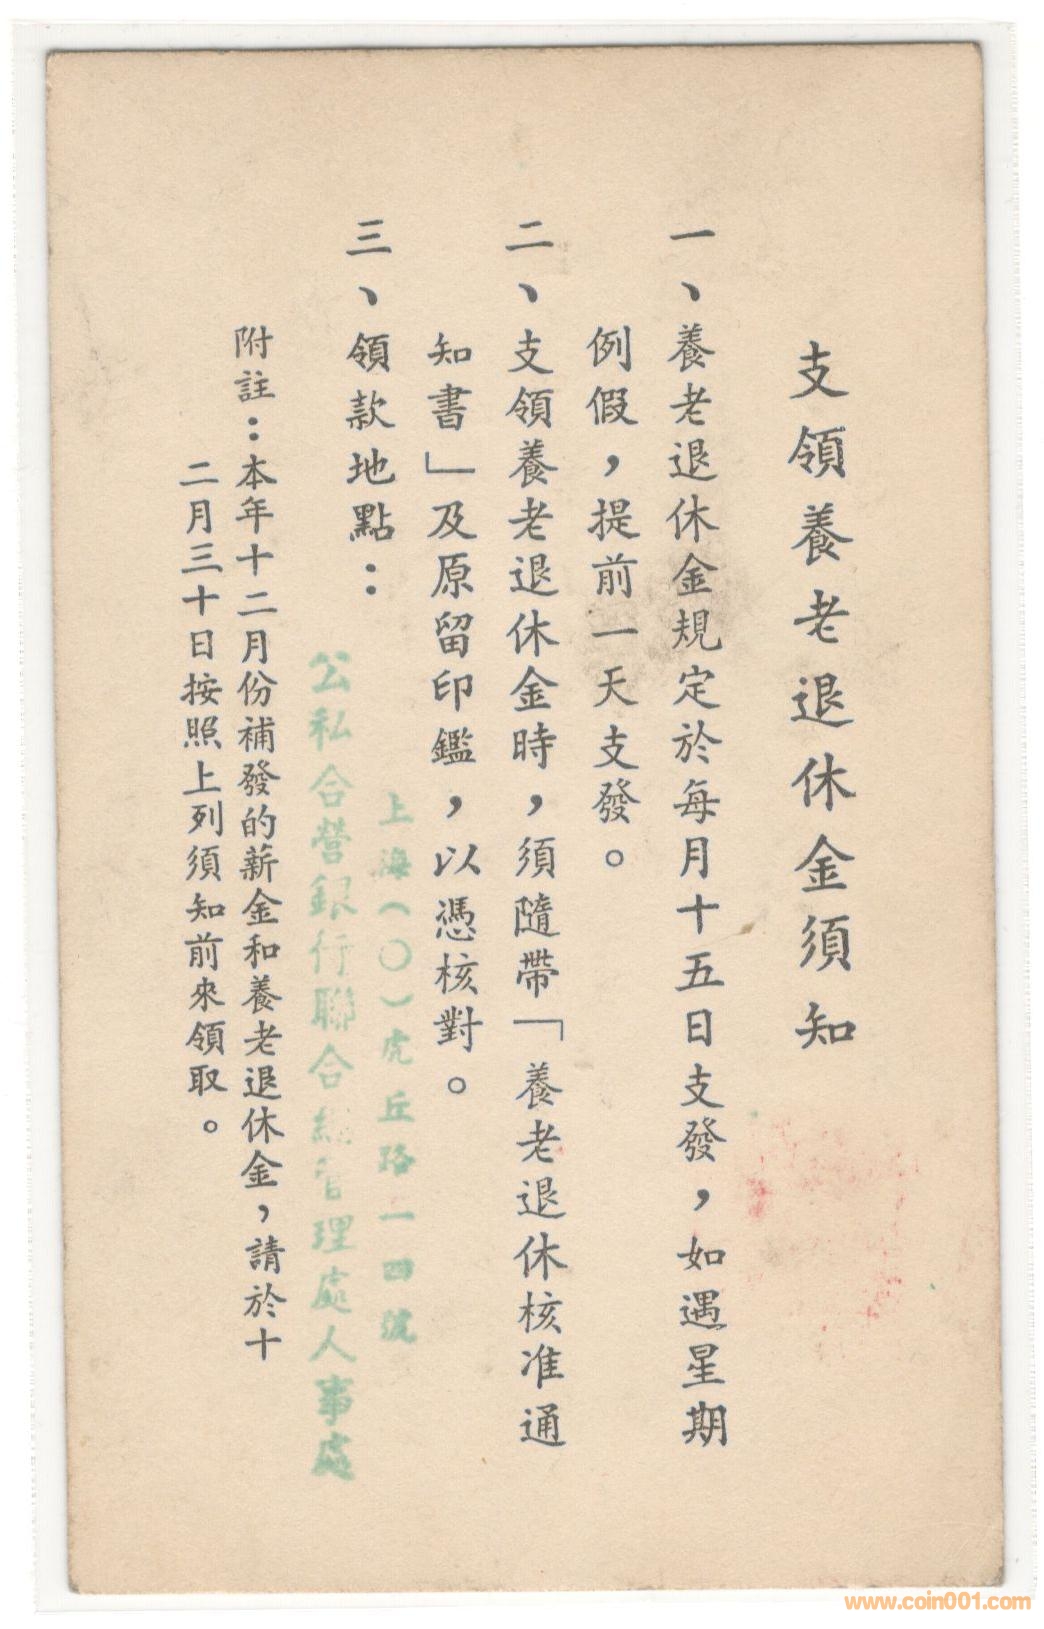 支領養老退休金須知
一、養老退休金規定於每月十五日支發，如遇星期
例假，提前一天支發。
二、支領養老退休金時，須隨帶「養老退休核准通
知書」及原留印鑑，以憑核對。
三、領款地點：
上海（〇）虎丘路一四號
公私合營銀行聯合總管理處人事處
附註：本年十二月份補發的薪金和養老退休金，請於十
二月三十日按照上列須知前來領取。
www.coin001.com